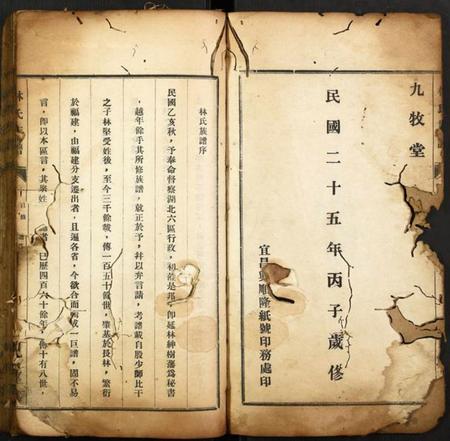 九牧堂
民國二十五年丙子歲修
宜昌順隆紙號印務處印
林氏族譜序
民國乙亥秋，予奉命督察湖北六區行政，初蒞是邦，即延林紳樹藩爲秘書
，越年餘手其所修族譜，就正於予，幷以弁言請，考譜載自殷少師比干
之子林堅受姓後，至今三千餘載，傳一百五十餘世，肇基於長林，繁衍
於福建，由福建分支遷出者，且遍各省，今欲合而成一巨譜，固不易
言，即以本區言，其來姓者，已歷四百六十餘年，傳十有八世，
林氏